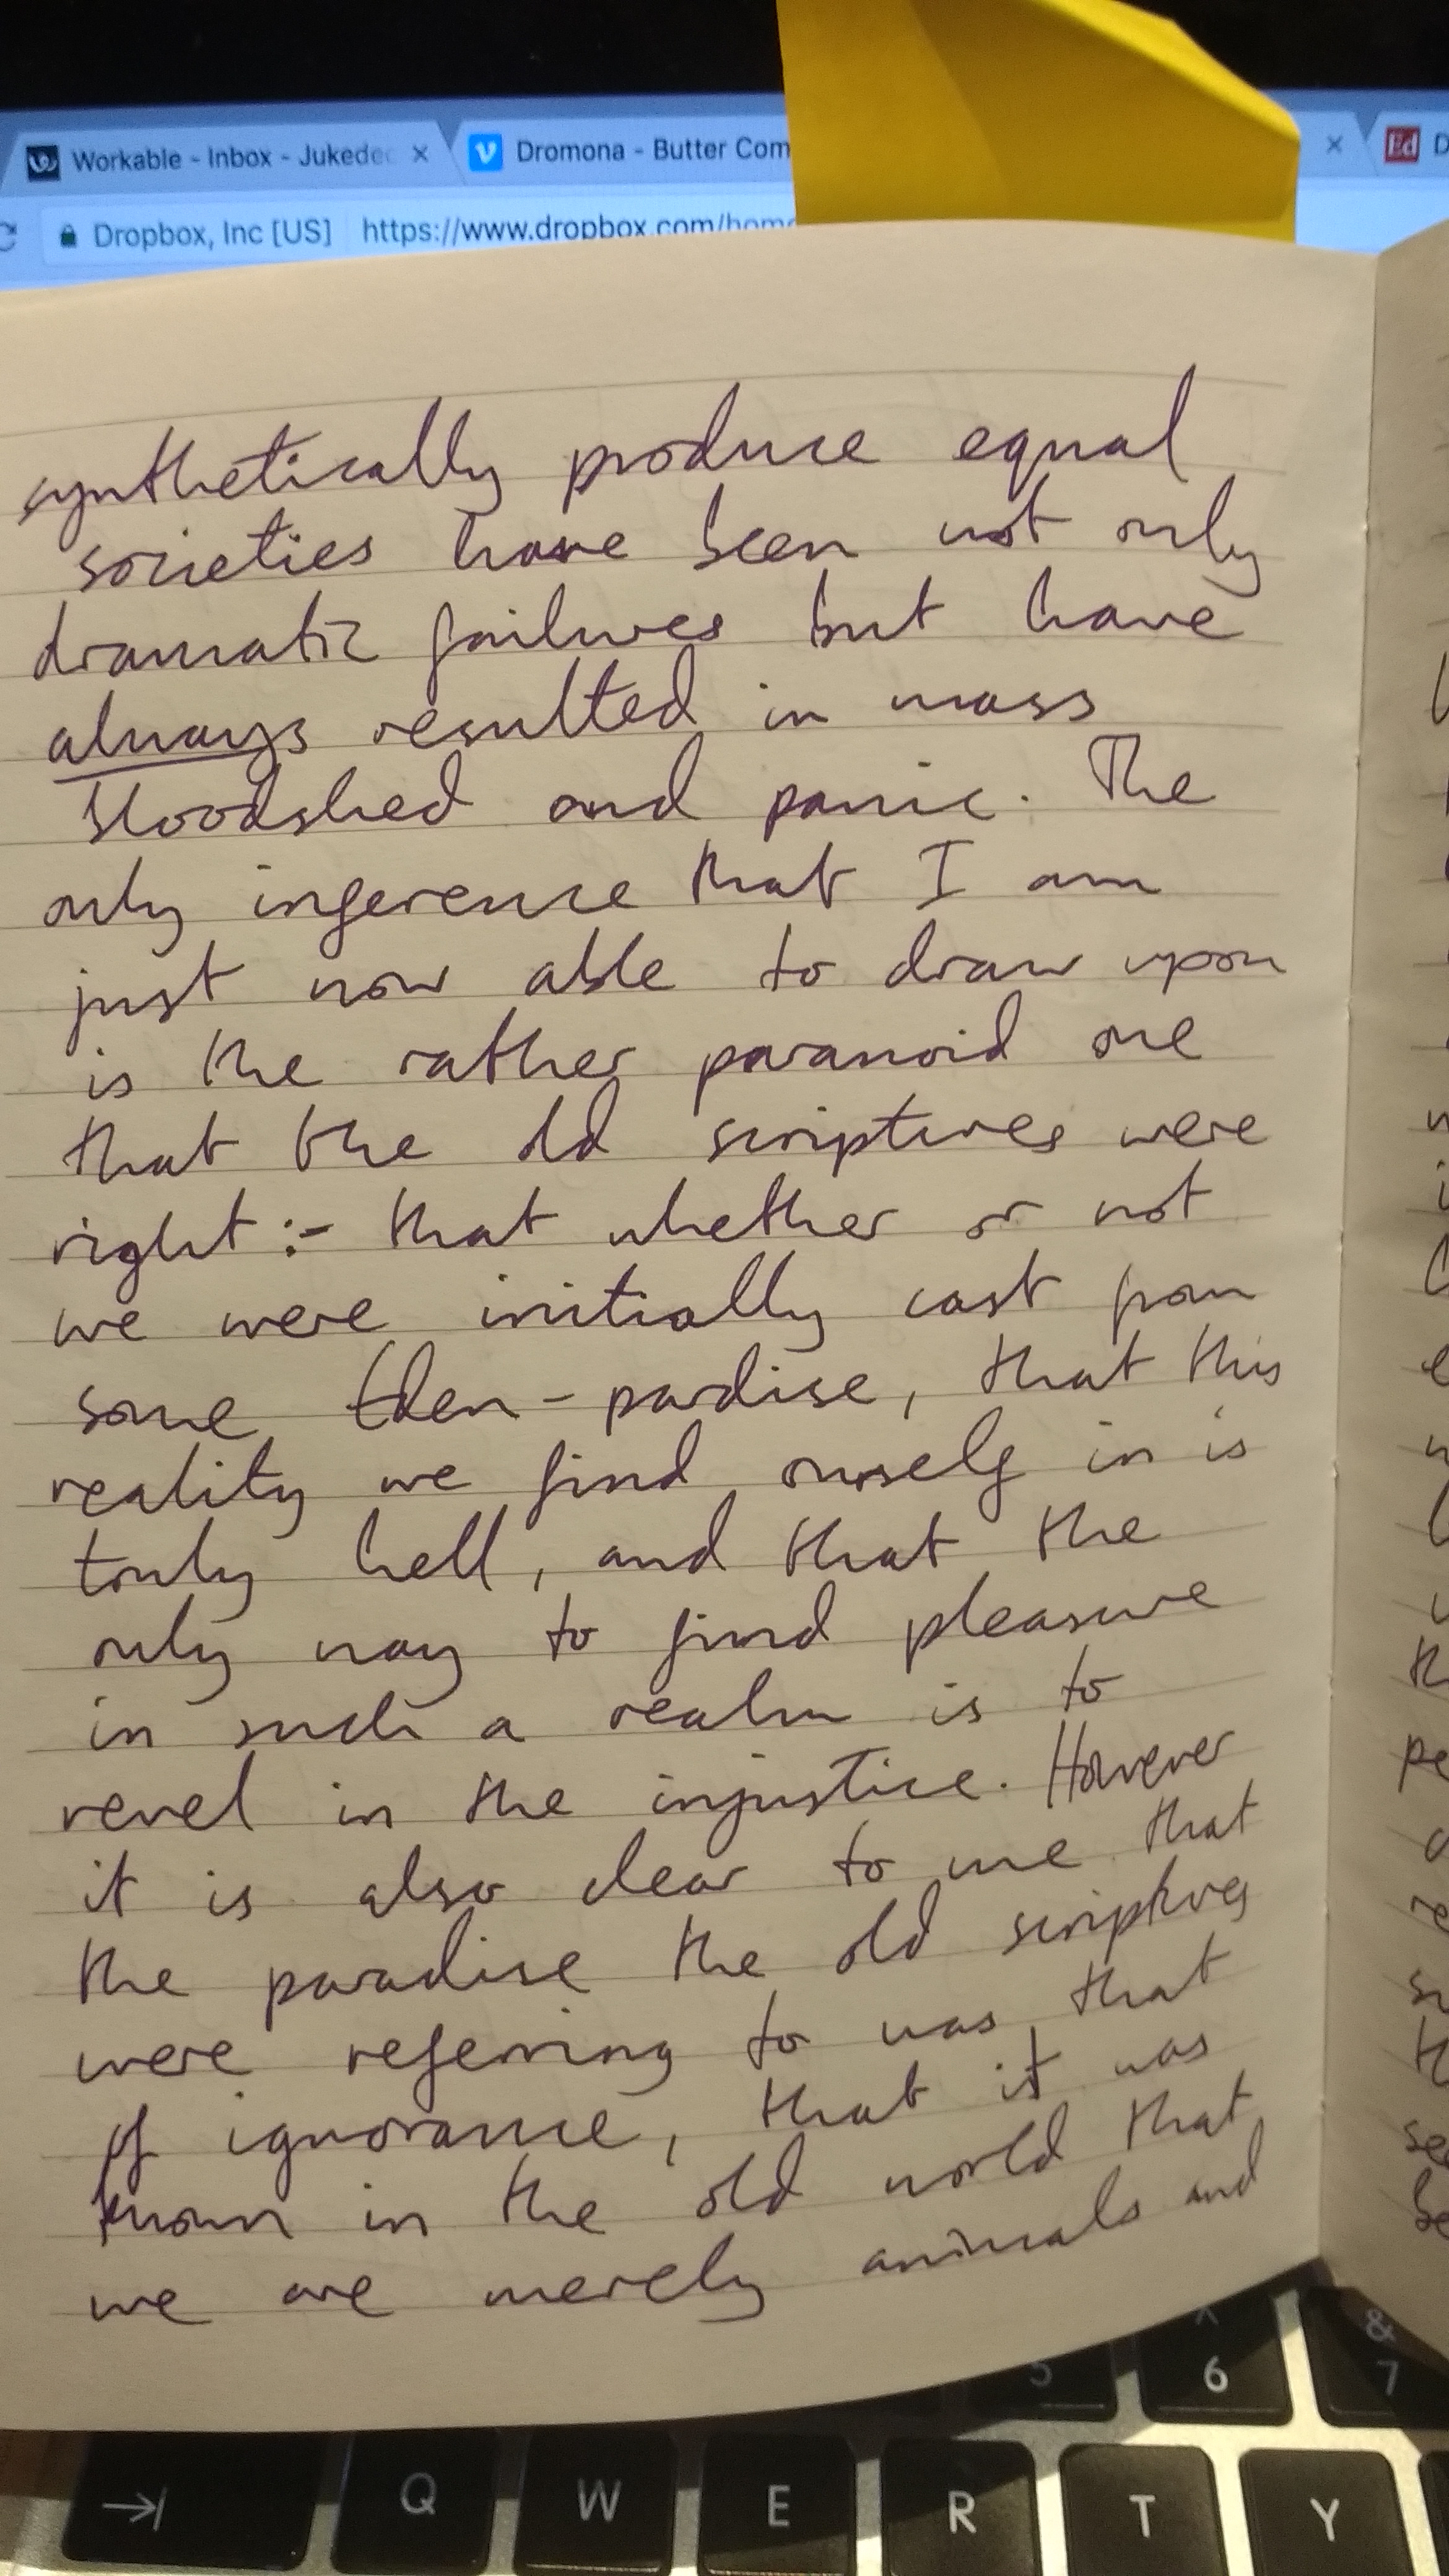 Workable - Inbox - Jukedec × Dromona - Butter Com × Ed D
Dropbox, Inc [US] https://www.dropbox.com/home
synthetically produce equal
societies have been not only
dramatic failures but have
always resulted in mass
bloodshed and panic. The
only inference that I am
just now able to draw upon
is the rather paranoid one
that the old scriptures were
right :- that whether or not
we were initially cast from
some Eden-pardise, that this
reality we find ourself in is
truly hell, and that the
only way to find pleasure
in such a realm is to
revel in the injustice. However
it is also clear to me that
the paradise the old scriptures
were referring to was that
of ignorance, that it was
known in the old world that
we are merely animals and
5 ^ 6 & 7
Q W E R T Y